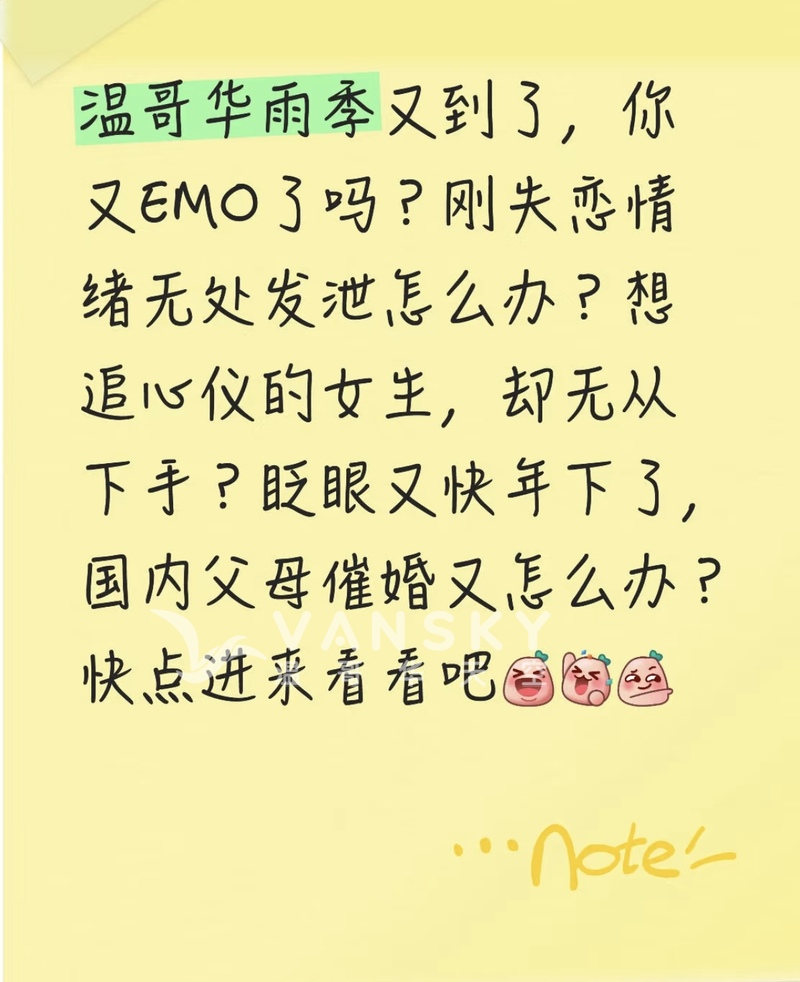 温哥华雨季又到了，你
又EMO了吗？刚失恋情
绪无处发泄怎么办？想
追心仪的女生，却无从
下手？眨眼又快年下了，
国内父母催婚又怎么办？
VANSKY
快点进来看看吧
...note